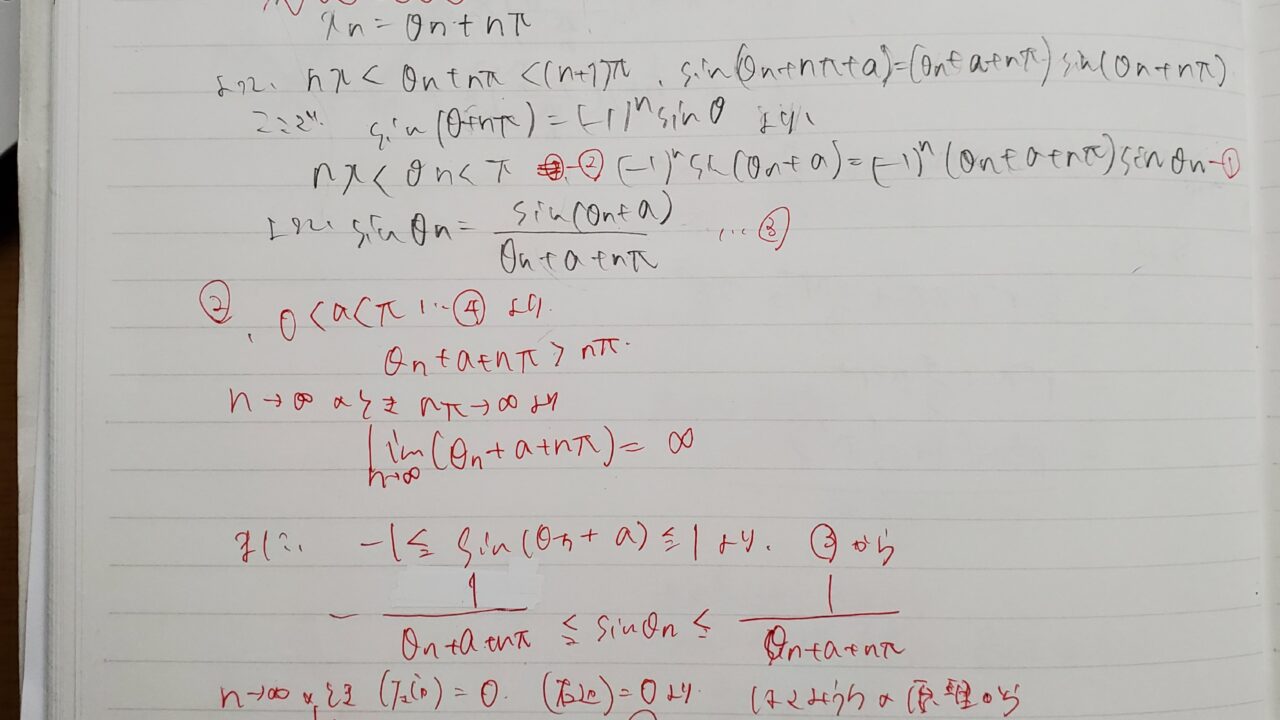 xn = θn + nπ
よって、nπ < θn + nπ < (n+1)π , sin(θn+nπ+a) = (θn+a+nπ) sin(θn+nπ)
ここで sin(θ+nπ) = (-1)^n sinθ より、
nπ < θn < π -② (-1)^n sin(θn+a) = (-1)^n (θn+a+nπ) sinθn -①
よって、sinθn = sin(θn+a) / (θn+a+nπ) … ③
②, 0 < a < π … ④ より.
θn + a + nπ > nπ.
n→∞ のとき nπ→∞ より
lim n→∞ (θn + a + nπ) = ∞
また、 -1 ≦ sin(θn + a) ≦ 1 より. ③ から
- 1 / (θn+a+nπ) ≦ sinθn ≦ 1 / (θn+a+nπ)
n→∞ のとき (左辺) = 0. (右辺) = 0 より. はさみうちの原理から